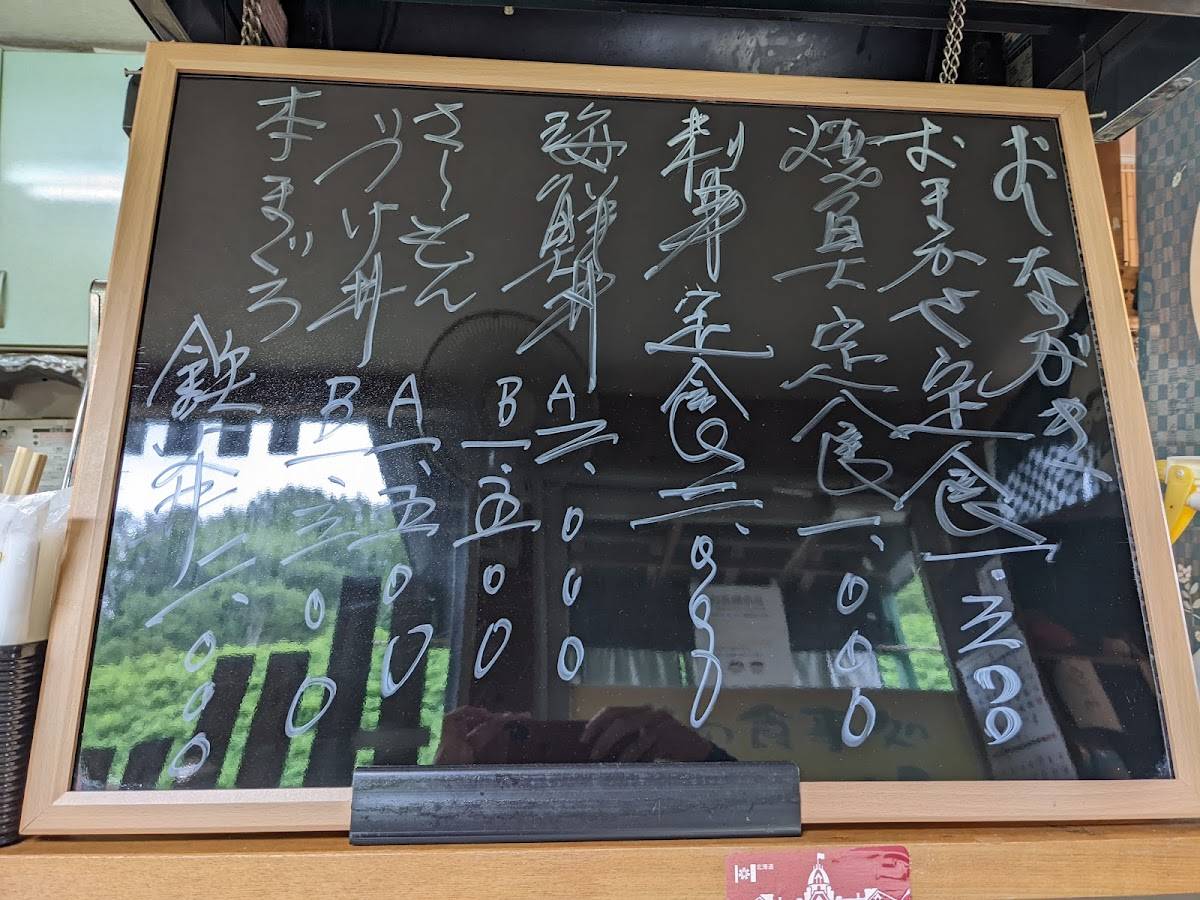 おしながき
おまかせ定食 一.三〇〇
煮魚定食 一、〇〇〇
刺身定食 二、〇〇〇
海鮮丼 A 二、〇〇〇
B 一.五〇〇
さーもん
づけ丼 A 一、五〇〇
B 一、三〇〇
本まぐろ
丼 二、〇〇〇
北海道